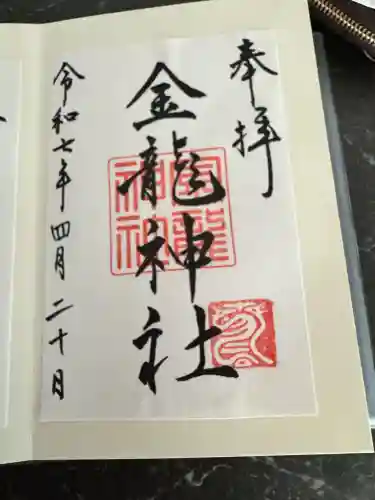 奉拝
金龍神社
令和七年四月二十日